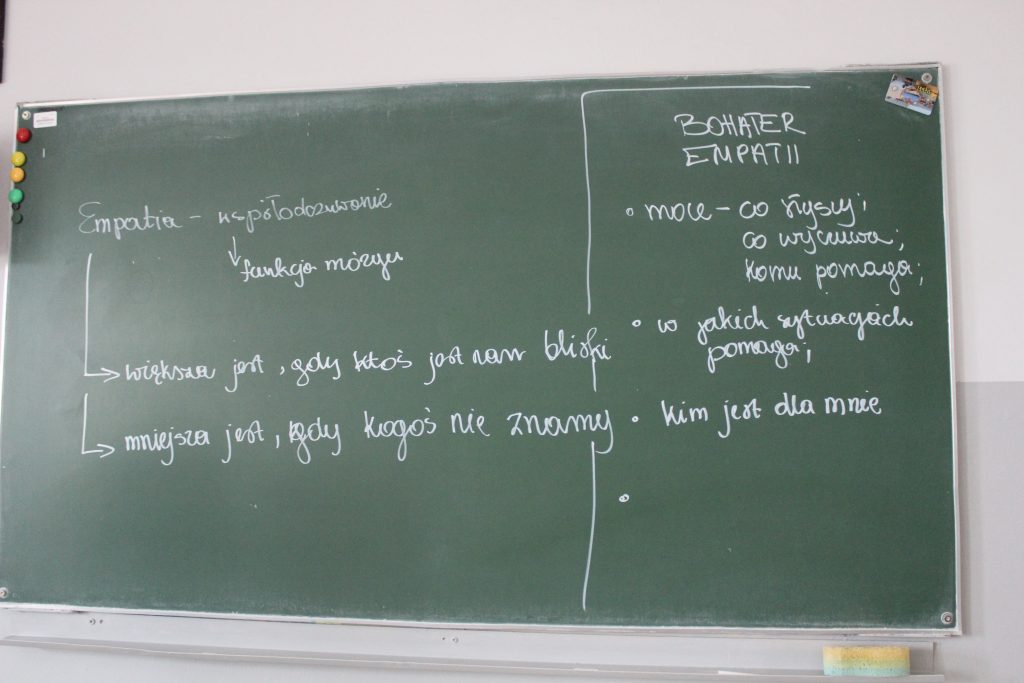 Empatia - współodczuwanie
funkcja mózgu
większa jest, gdy ktoś jest nam bliski
mniejsza jest, gdy kogoś nie znamy
BOHATER
EMPATII
• moce - co słyszy;
co wyczuwa;
komu pomaga;
• w jakich sytuacjach
pomaga;
• kim jest dla mnie
•